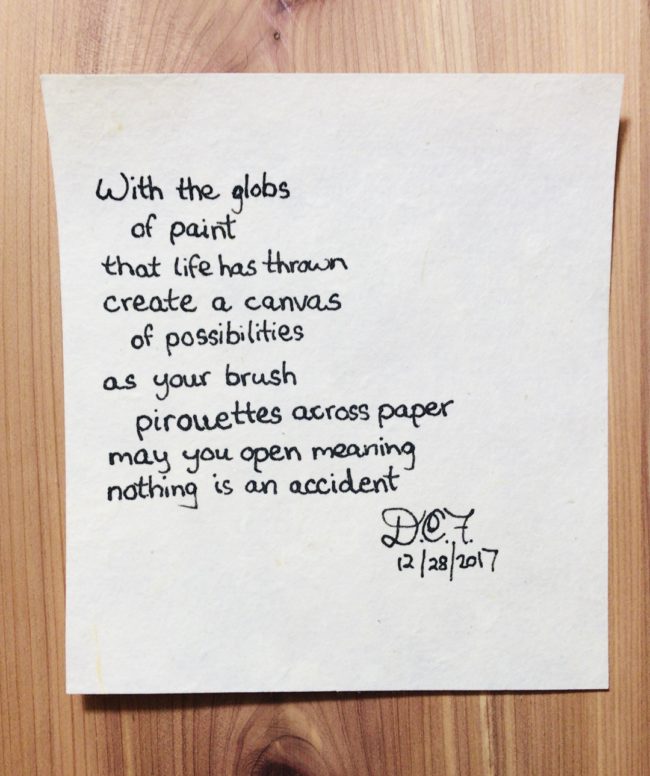 With the globs
of paint
that life has thrown
create a canvas
of possibilities
as your brush
pirouettes across paper
may you open meaning
nothing is an accident
D.C.F.
12/28/2017